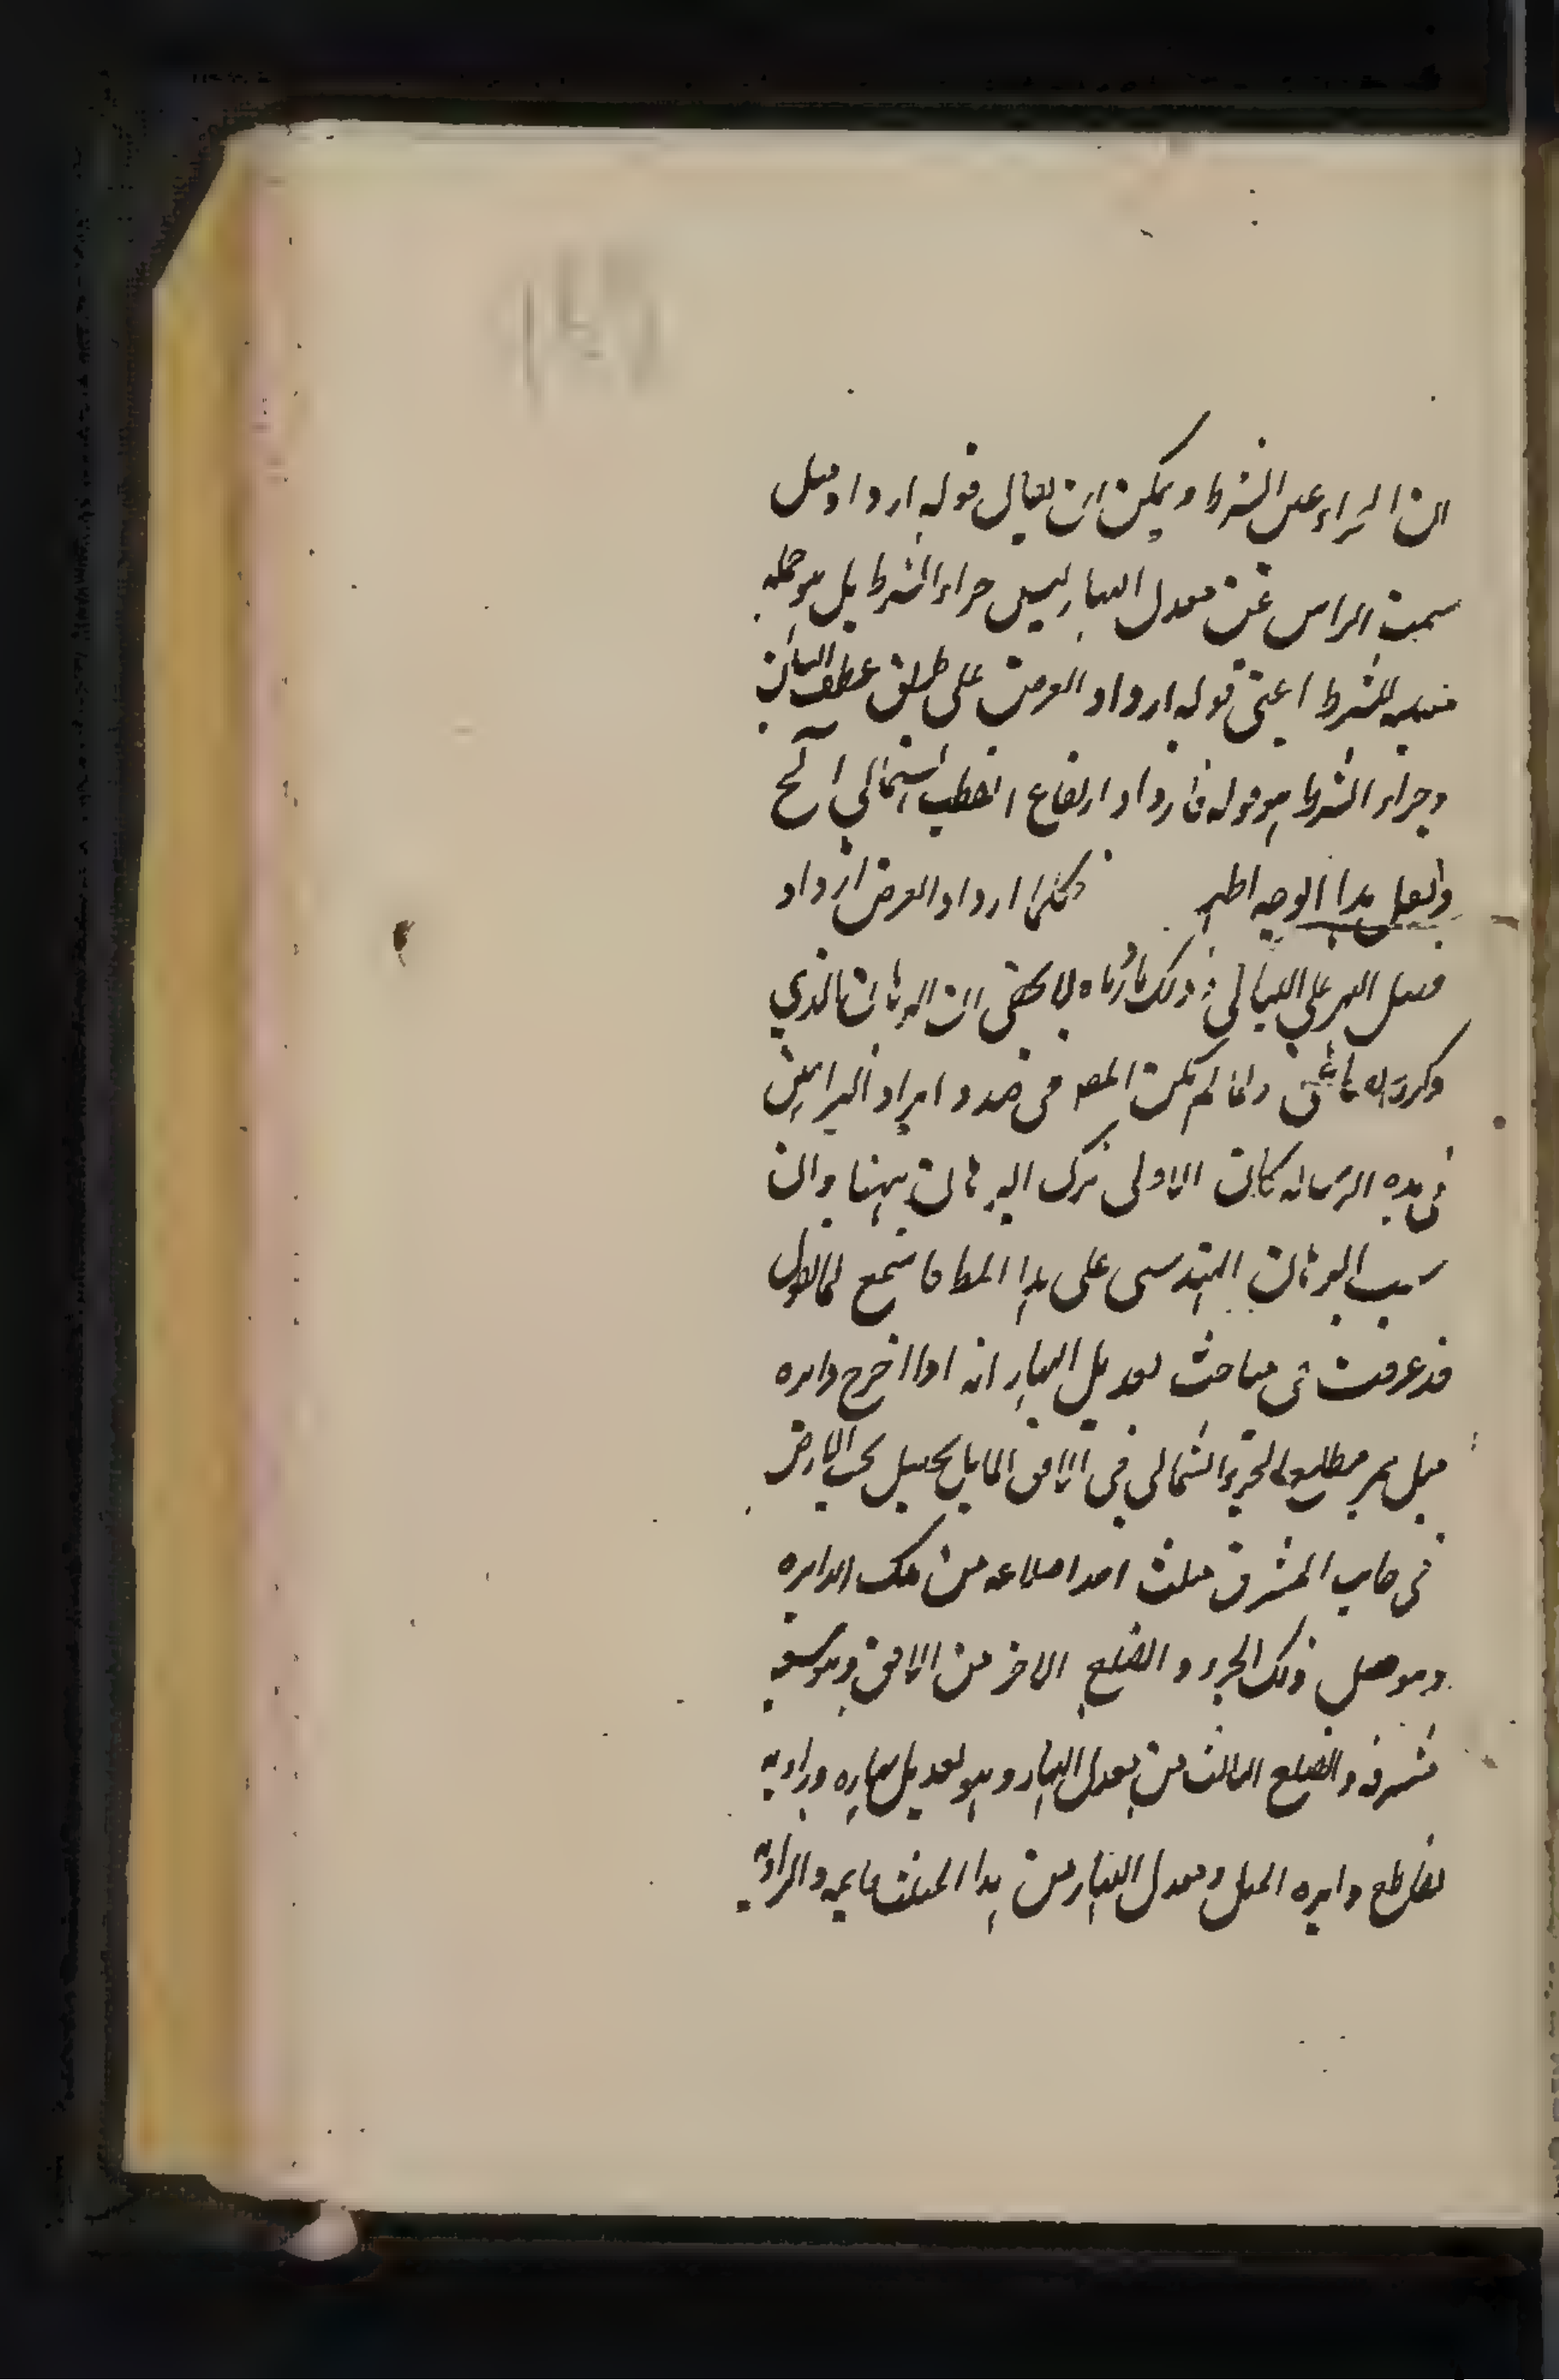 ان الجزاء على الشرط ويمكن ان يقال قوله ازداد ميل
سمت الراس عن معدل النهار ليس جزاء الشرط بل هو جملة
للشرط اعني قوله ازداد العرض على طريق عطف البيان
وجزاء الشرط هو قوله فازداد ارتفاع القطب الشمالي الخ
ولعل هذا الوجه اظهر فكلما ازداد العرض ازداد
فضل النهر على الليالي وذلك لا يخفى ان البرهان الذي
ذكره ولما لم يكن المص في صدد ايراد البراهين
في هذه الرسالة كان الاولى ترك البرهان ههنا وان
البرهان الهندسي على هذا المط فاستمع لما نقول
قد عرفت في مباحث تعديل النهار انه اذا اخرج دايرة
ميل تمر بمطلع الجزء الشمالي في الافق المايل يحصل تحت الارض
في جانب المشرق مثلث احد اضلاعه من تلك الدايرة
وهو ميل ذلك الجزء والضلع الاخر من الافق وهو سعة
مشرقه والضلع الثالث من معدل النهار وهو تعديل نهاره وزاوية
تقاطع دايرة الميل ومعدل النهار من هذا المثلث قايمة والزاوية